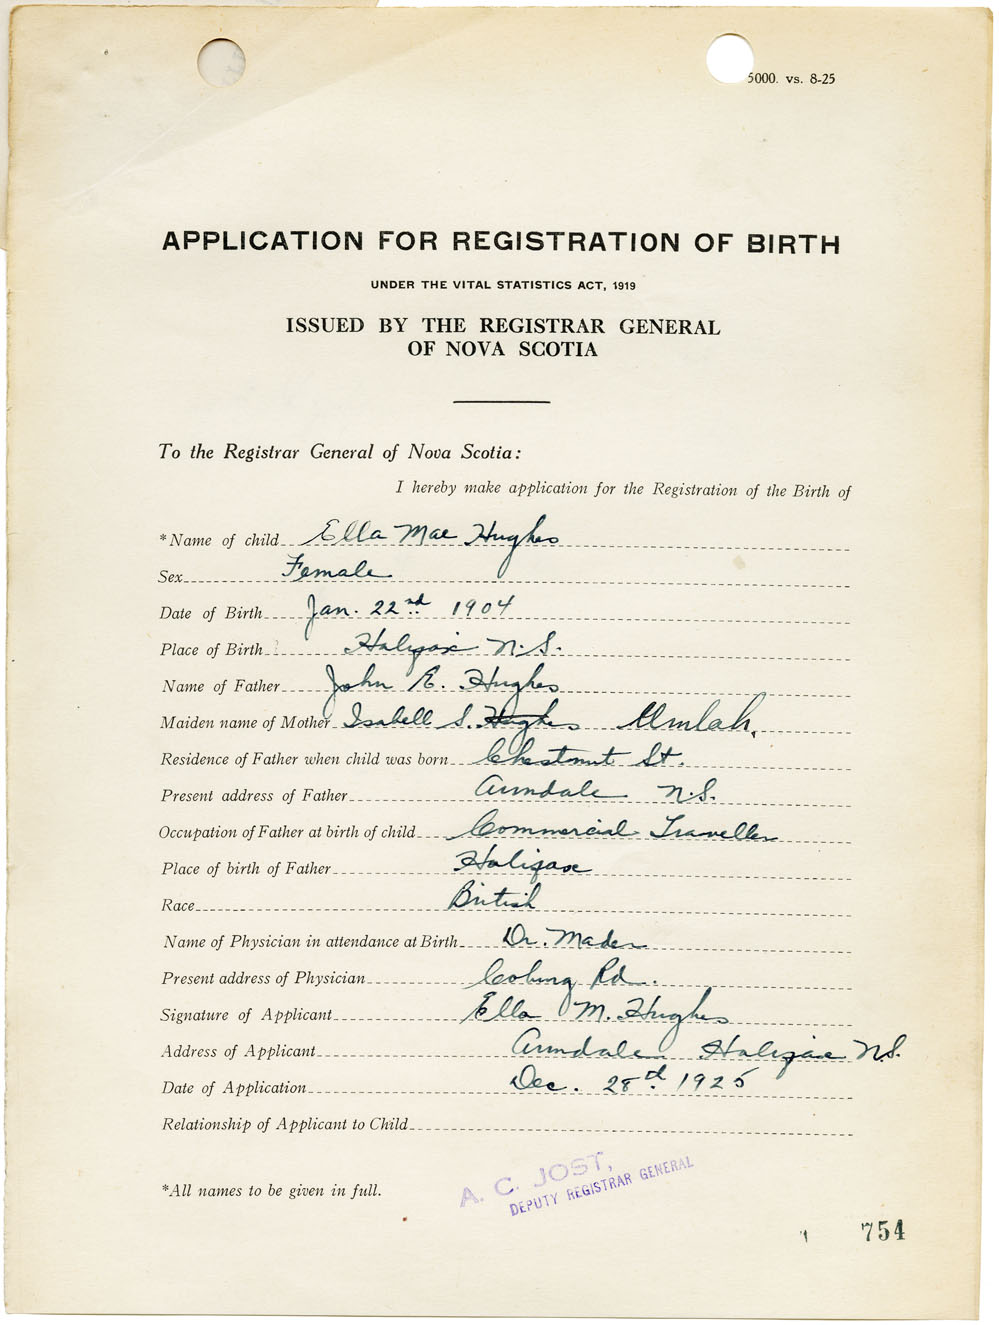 5000. vs. 8-25
APPLICATION FOR REGISTRATION OF BIRTH
UNDER THE VITAL STATISTICS ACT, 1919
ISSUED BY THE REGISTRAR GENERAL
OF NOVA SCOTIA
To the Registrar General of Nova Scotia:
I hereby make application for the Registration of the Birth of
*Name of child Ella Mae Hughes
Sex Female
Date of Birth Jan. 22nd 1904
Place of Birth Halifax N.S.
Name of Father John E. Hughes
Maiden name of Mother Isabell S. Hughes Umlah.
Residence of Father when child was born Chestnut St.
Present address of Father Armdale N.S.
Occupation of Father at birth of child Commercial Traveller
Place of birth of Father Halifax
Race British
Name of Physician in attendance at Birth Dr. Mader
Present address of Physician Coburg Rd.
Signature of Applicant Ella M. Hughes
Address of Applicant Armdale Halifax N.S.
Date of Application Dec. 28d. 1925
Relationship of Applicant to Child
*All names to be given in full.
A. C. JOST,
DEPUTY REGISTRAR GENERAL
754